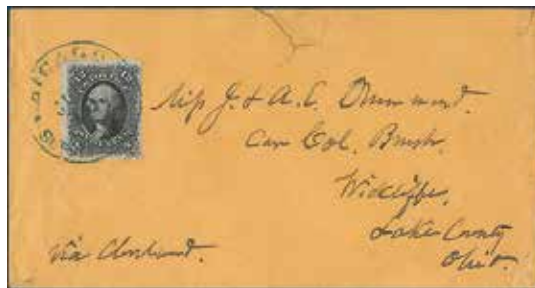 Miss J. & A. C. Drummond.
Care Col. Brush.
Wickliffe,
Lake County
Ohio.
Via Cleveland.